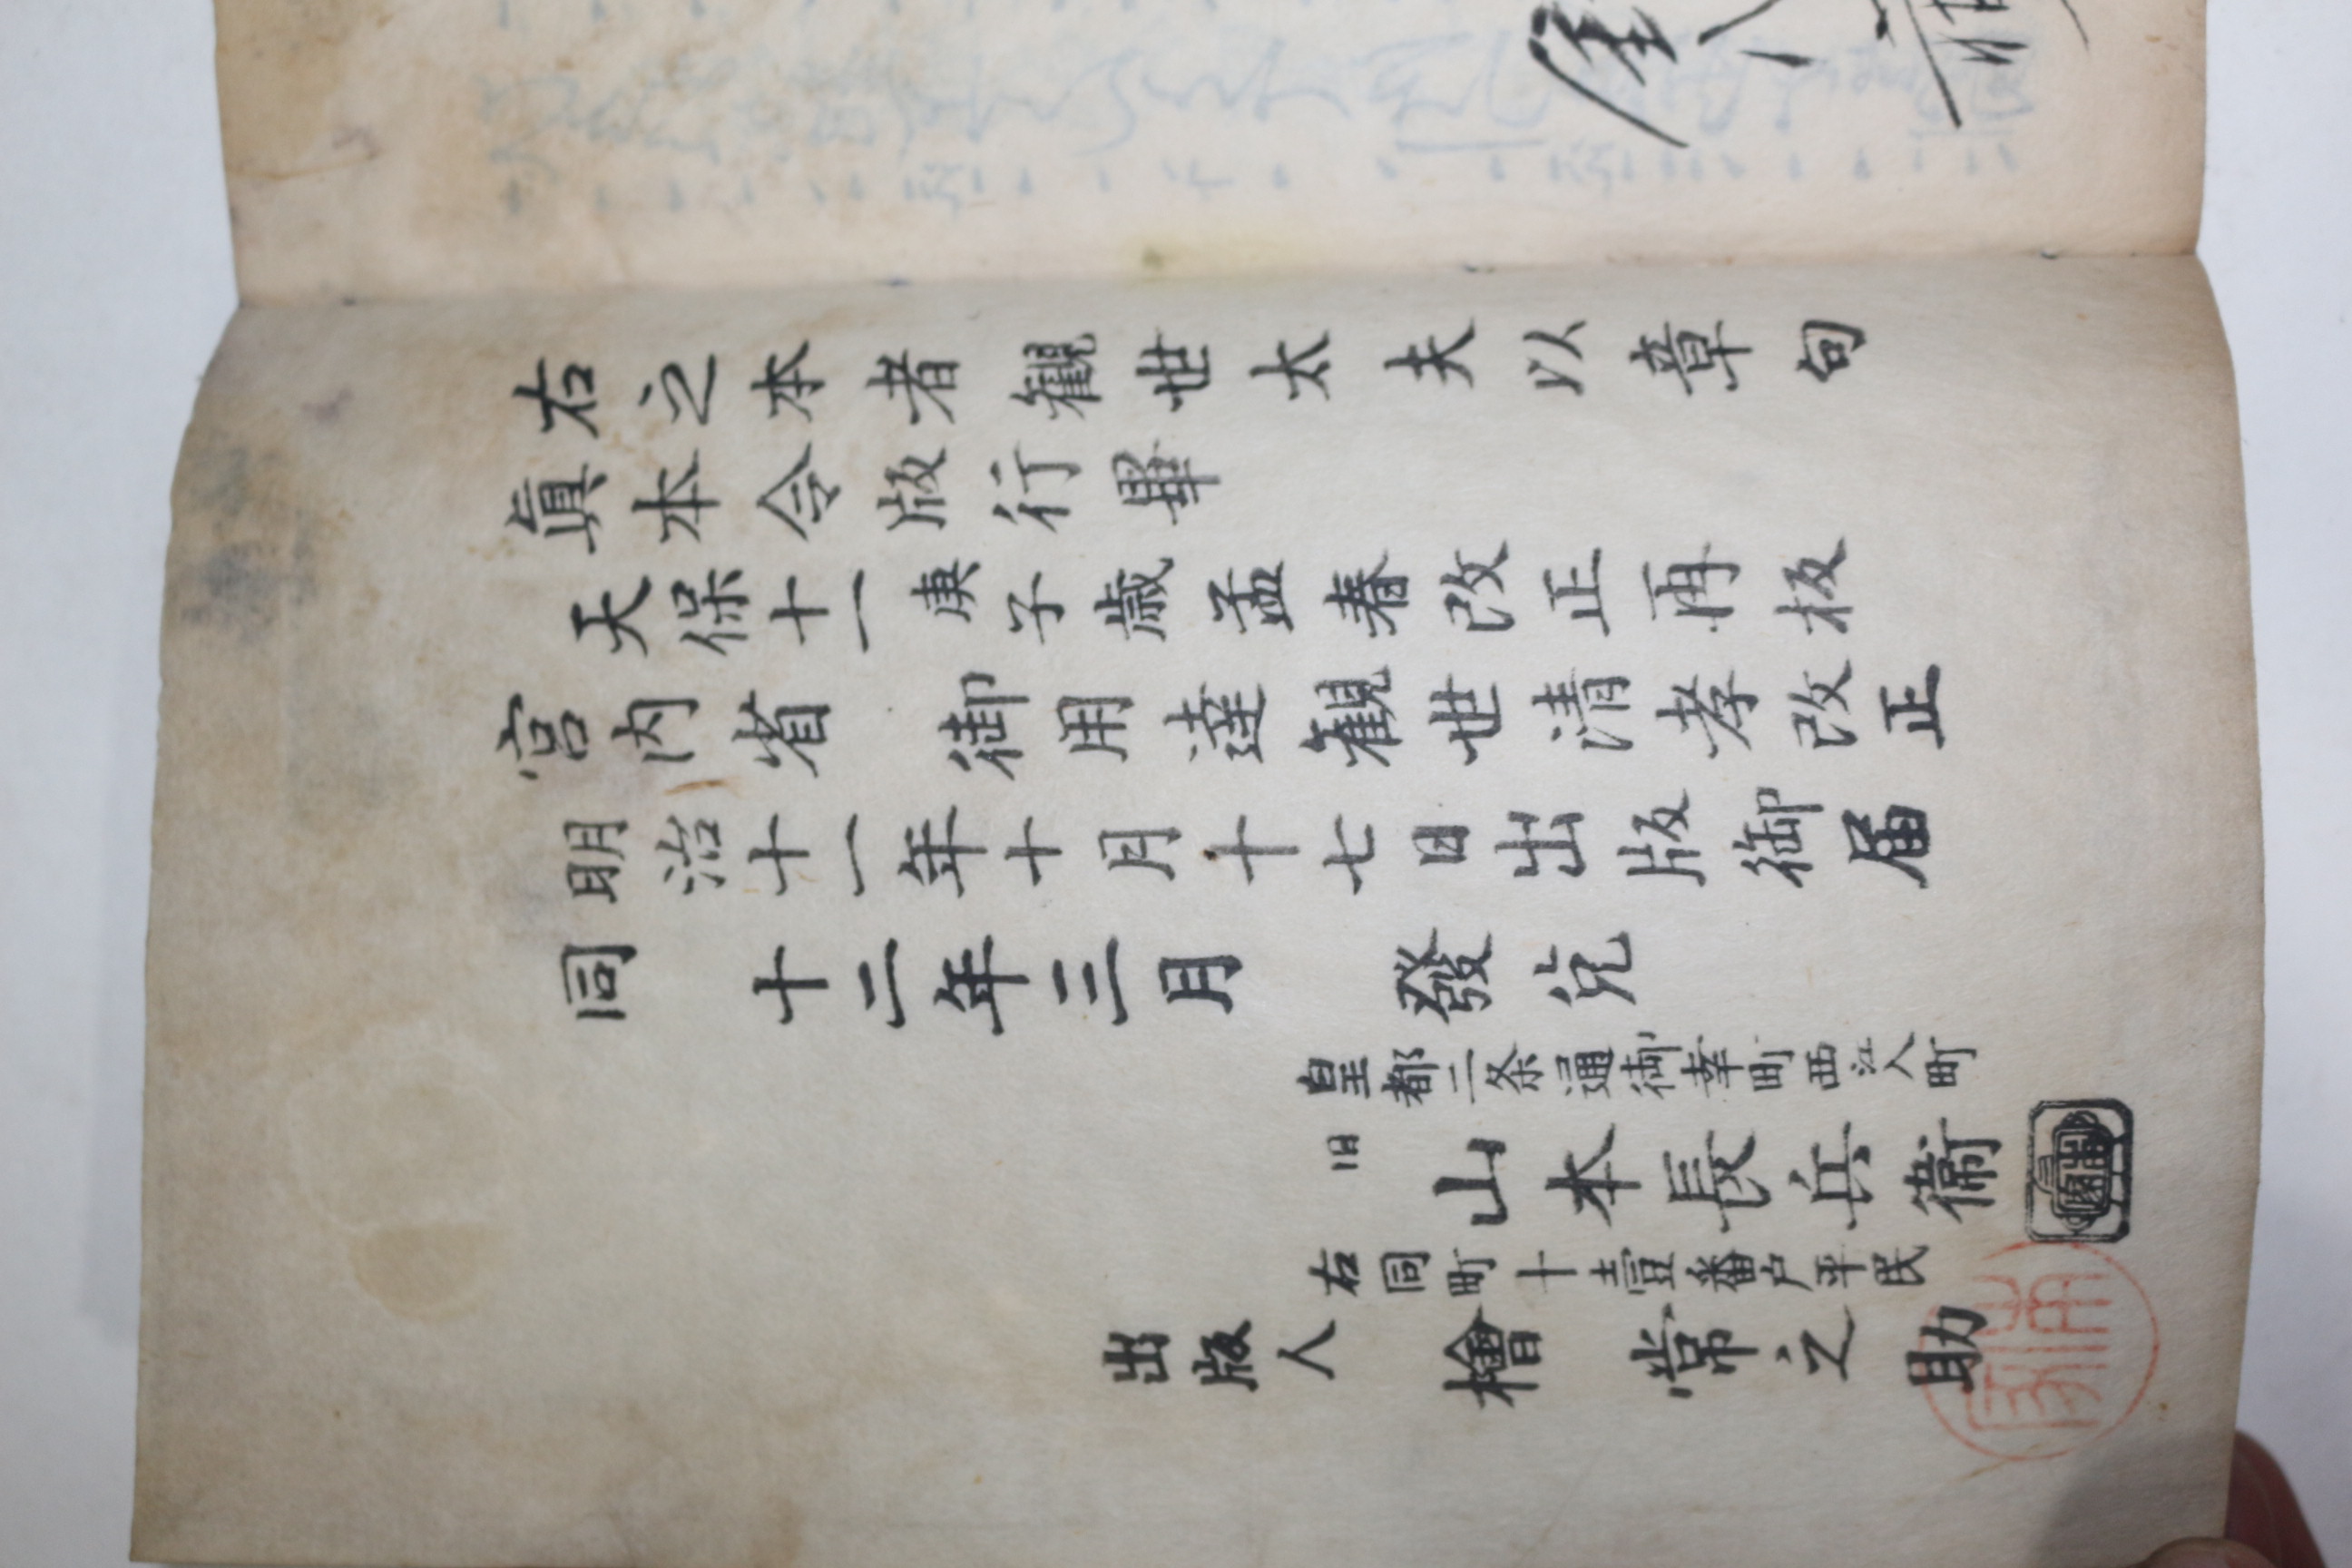 右之本者観世太夫以章句
眞本令版行畢
天保十一庚子歳孟春改正再板
宮内省御用達観世清孝改正
明治十一年十月十七日出版御届
同十二年三月發兌
皇都二条通御幸町西江入町
旧山本長兵衞
右同町十壹番戸平民
出版人檜常之助